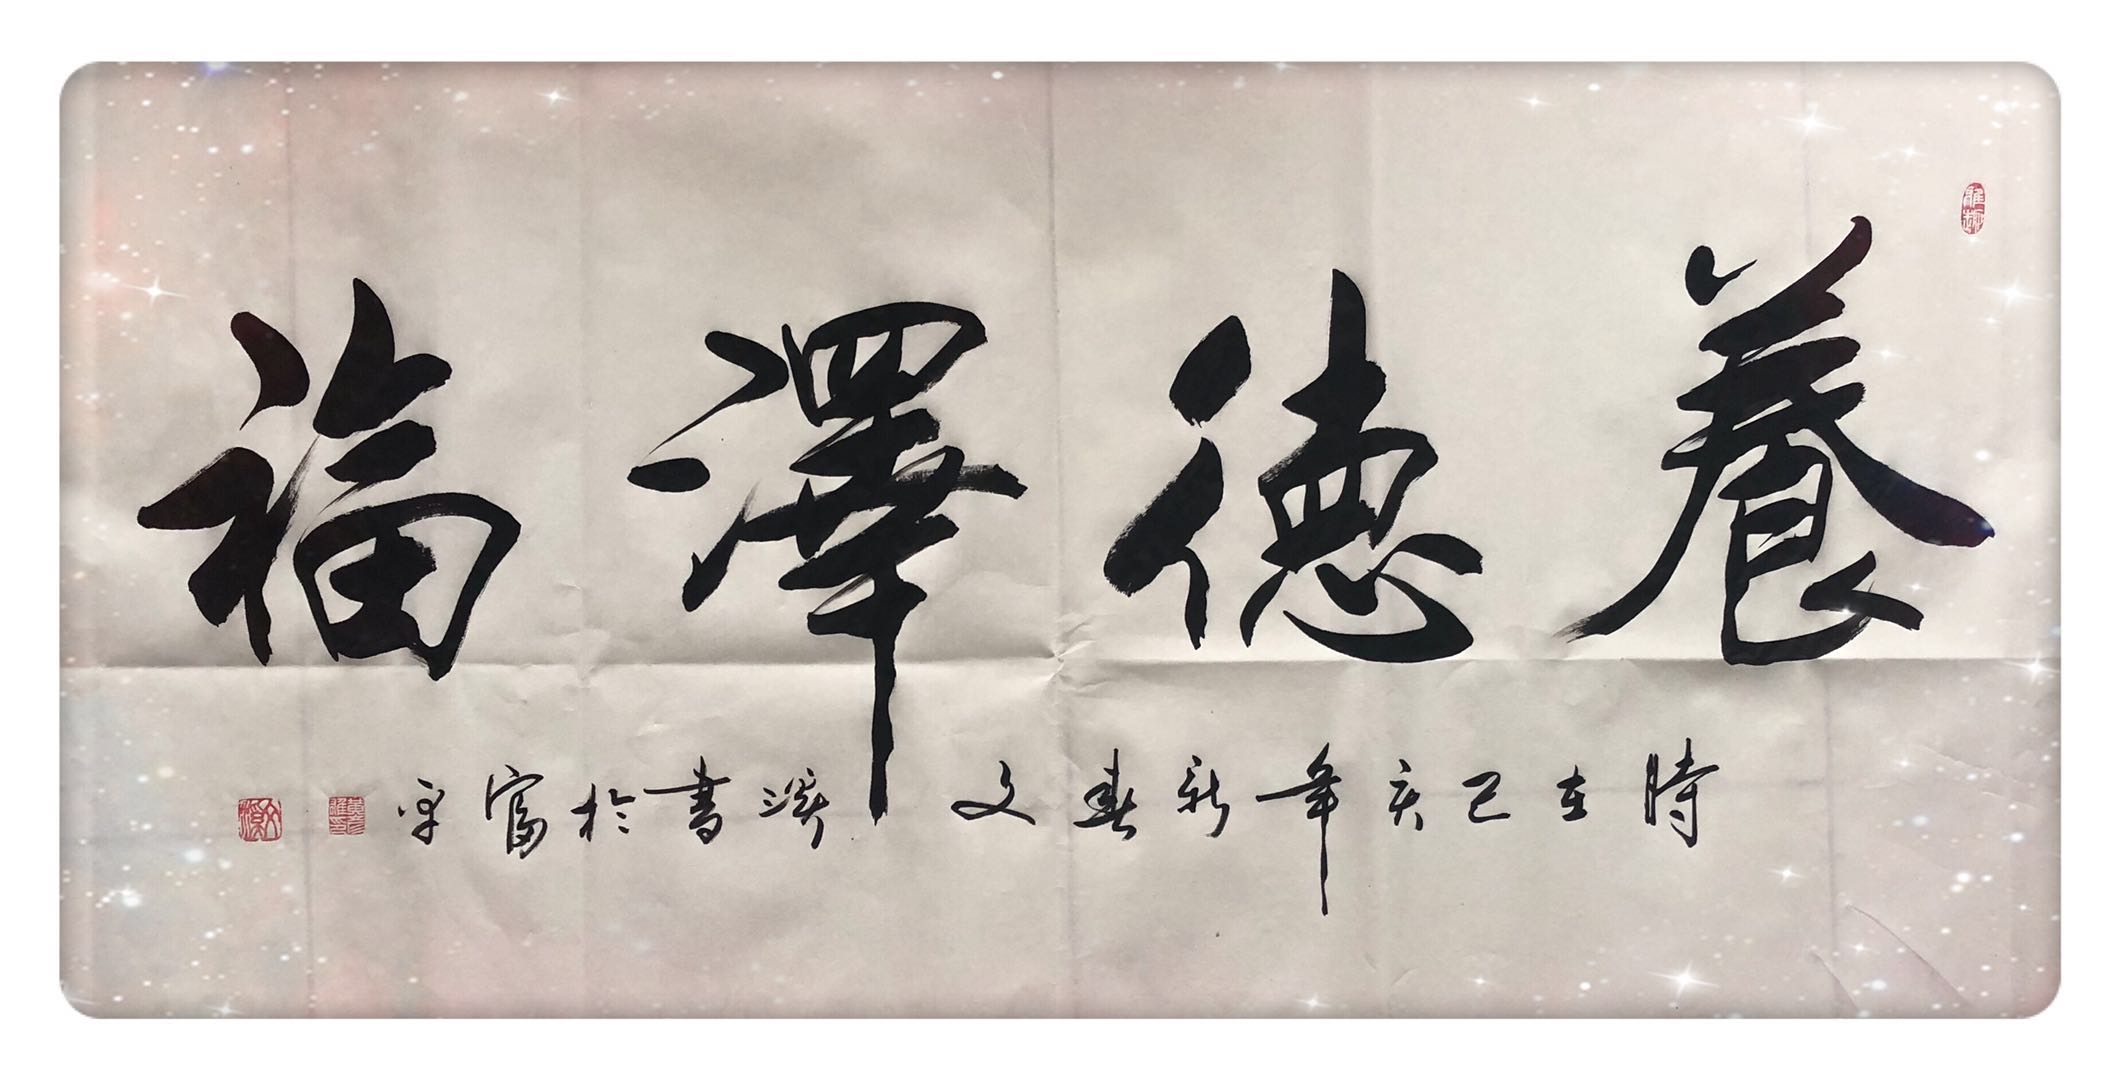 養德澤福
時在己亥年新春文溪書於富平